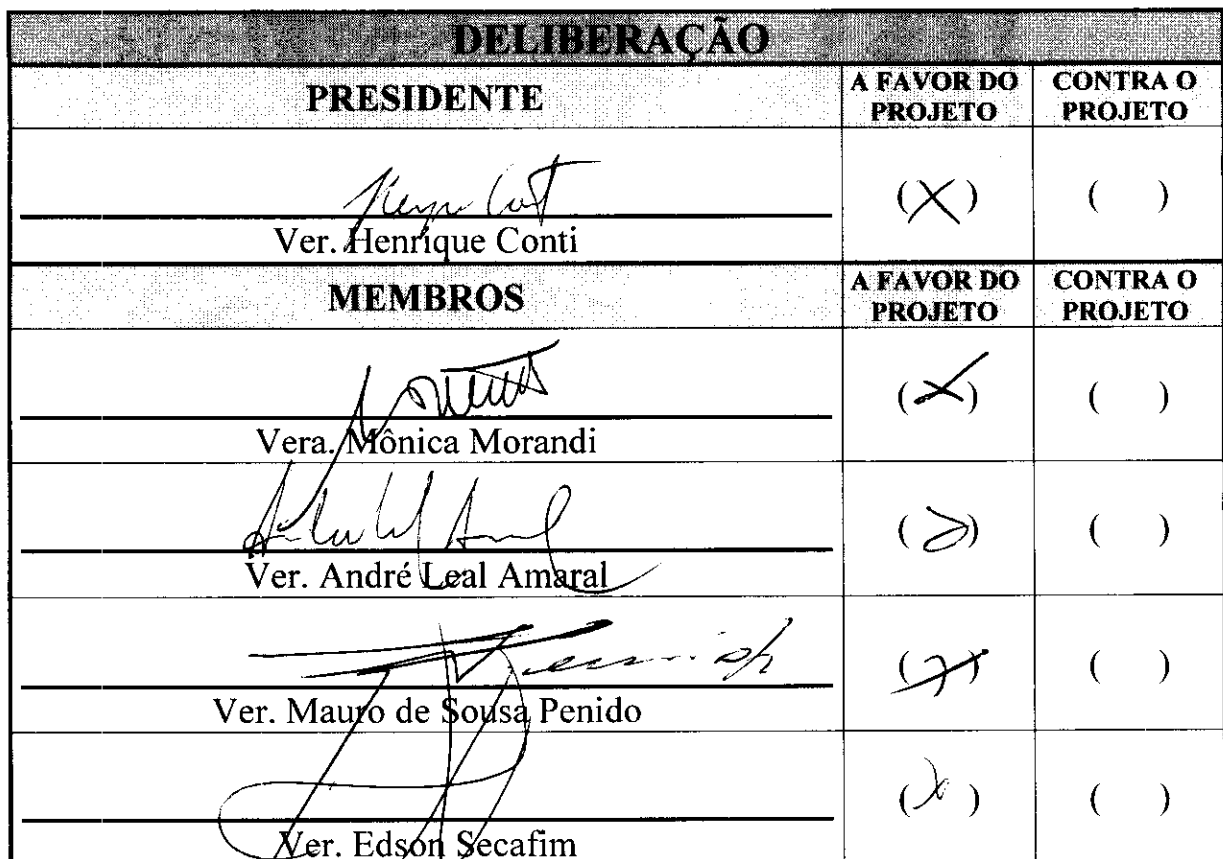 DELIBERAÇÃO
PRESIDENTE
A FAVOR DO
PROJETO
CONTRA O
PROJETO
Ver. Henrique Conti
(X)
( )
MEMBROS
A FAVOR DO
PROJETO
CONTRA O
PROJETO
Vera. Mônica Morandi
(X)
( )
Ver. André Leal Amaral
( )
( )
Ver. Mauro de Sousa Penido
(X)
( )
Ver. Edson Secafim
(X)
( )